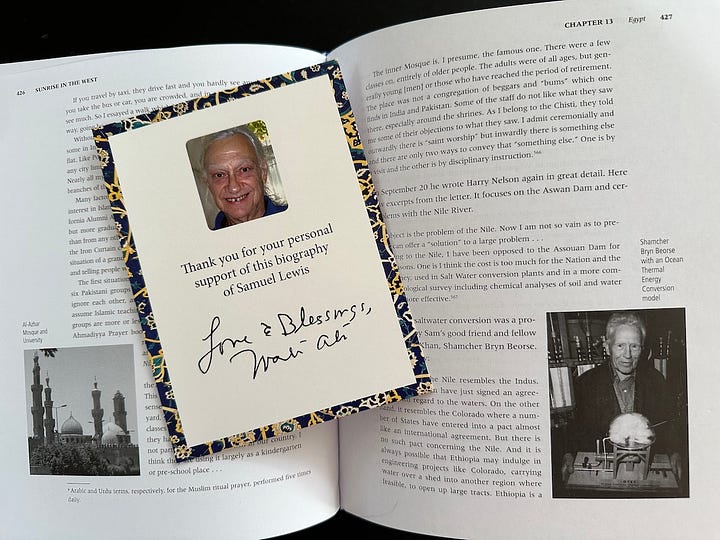 426 SUNRISE IN THE WEST
If you travel by taxi, they drive fast and you hardly see
you take the bus or car, you are crowded, and in
see much. So I essayed a walk
way, going
Witho
some in
flat. Like Po
any city limi
Nearly all m
branches of
Many facto
interest in Islam
fornia Alumni A
but more gradua
than from any oth
the Iron Curtain c
situation of a gran
and telling people w
The first situation
six Pakistani groups
ignore each other,
assume Islamic teach
groups are more or le
Ahmadiyya Prayer boo
Al-Azhar
Mosque and
University
in the
This
sense
yard,
class
they ha
not part
think they are using it largely as a kindergarten
or pre-school place . . .
* Arabic and Urdu terms, respectively, for the Muslim ritual prayer, performed five times
daily.
Thank you for your personal
support of this biography
of Samuel Lewis
Love & Blessings,
Wali Ali
CHAPTER 13 Egypt 427
The inner Mosque is, I presume, the famous one. There were a few
classes on, entirely of older people. The adults were of all ages, but gen-
erally young [men] or those who have reached the period of retirement.
The place was not a congregation of beggars and "bums" which one
finds in India and Pakistan. Some of the staff do not like what they saw
there, especially around the shrines. As I belong to the Chisti, they told
me some of their objections to what they saw. I admit ceremonially and
outwardly there is "saint worship" but inwardly there is something else
and there are only two ways to convey that "something else." One is by
visit and the other is by disciplinary instruction.566
September 20 he wrote Harry Nelson again in great detail. Here
excerpts from the letter. It focuses on the Aswan Dam and cer-
lems with the Nile River.
bject is the problem of the Nile. Now I am not so vain as to pre-
can offer a "solution" to a large problem . . .
ing to the Nile, I have been opposed to the Assouan Dam for
sons. One is I think the cost is too much for the Nation and the
ey, used in Salt Water conversion plants and in a more com-
ological survey including chemical analyses of soil and water
ore effective.567
saltwater conversion was a pro-
y Sam's good friend and fellow
Khan, Shamcher Bryn Beorse.
Shamcher
Bryn Beorse
with an Ocean
Thermal
Energy
Conversion
model
the Nile resembles the Indus.
an have just signed an agree-
regard to the waters. On the other
hand, it resembles the Colorado where a num-
ber of States have entered into a pact almost
like an international agreement. But there is
no such pact concerning the Nile. And it is
always possible that Ethiopia may indulge in
engineering projects like Colorado, carrying
water over a shed into another region where
feasible, to open up large tracts. Ethiopia is a